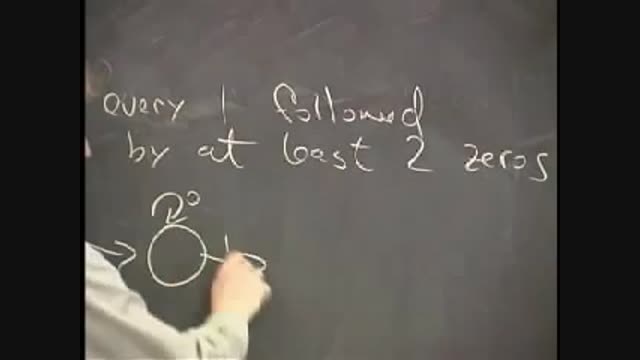 every 1 followed
by at least 2 zeros
0
1